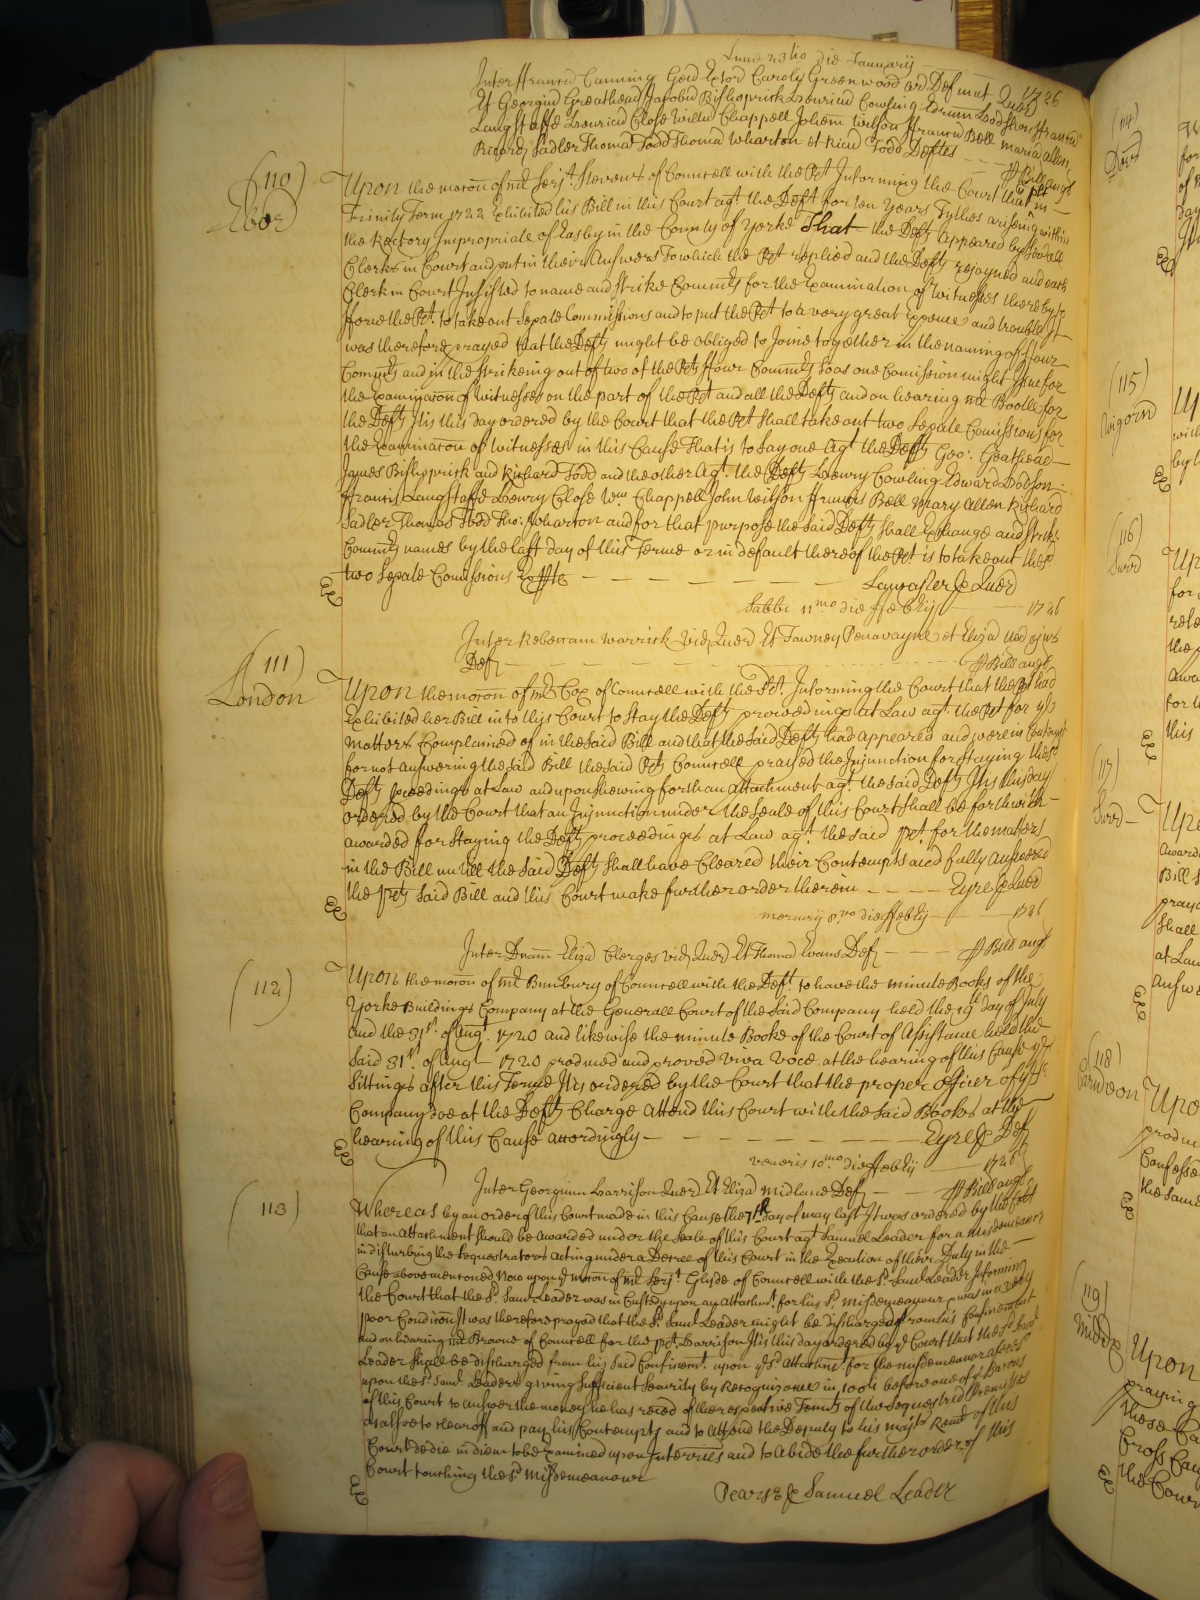 Lune 23tio die Januarij
Inter Franciū Canning Gen̄ Exōr Caroly Greenwood ar̄ Def unct Quer̄ 1726
Et Georgiū Greathead Jacobū Bishoprick Henricū Cowling Edrum Dodshon Franciū
Langstaffe Henricū Close Willm̄ Chappell Johem Wilson Franciū Bell maria allen
Ricard̄ Sadler Thoma Todd Thoma Wharton et Ricū Todd Defts
(110)
Ebor
℔ Bill angl
Upon the mocōn of mr̄ Serjt. Stevens of Councell with the Plt Informing the Court that the plt in
Trinity Term 1722 Exhibited his Bill in this Court agt. the Deft for ten Years Tythes ariseing within
the Rectory Impropriate of Easby in the County of Yorke That the Defts appeared by
Clerks in Court and put in their Answers To which the Plt replied and the Defts rejoyned and each
Clerk in Court Insisted to name and strike Commrs for the Examination of Witnesses thereby to
force the Plt. to take out Sepate Commissions and to put the Plt to a very great Expence and trouble It
was therefore prayed that the Defts might be obliged to Joine together in the naming of ffour
Commrs and in the strikeing out of two of the Plts ffour Commrs soas one Comission might Issue for
the Examinacōn of Witnesses on the part of the Plt and all the Defts and on hearing mr̄ Bootle for
the Defts It is this day ordered by the Court that the Plt shall take out two Sepate Comissions for
the Examinacōn of Witnesses in this Cause That is to say one agt. the Defts Geo: Greathead
James Bishoprick and Richard Todd and the other agt. the Defts Henry Cowling Edward Dodson
Francis Langstaffe Henry Close Wm Chappell John Wilson ffrancis Bell Mary Allen Richard
Sadler Thomas Todd Tho: Wharton and for that purpose the said Defts shall Exchange and strike
Commrs names by the last day of this Terme or in default thereof the Plt is to take out the sd
two Sepate Comissions Exp̄te
Lancaster p Quer̄
Sabbi 11mo die ffebrij 1726
Inter Rebeccam Warrick vid̄ Quer̄ Et Tawney Penavayne et Eliza ux̄ ejus
Defts
℔ Bill angl
(111)
London
Upon the mocōn of mr̄ Cox of Councell with the Plt. Informing the Court that the Plt had
Exhibited her Bill into this Court to stay the Defts proceedings at Law agt. the Plt for ye
matters Complained of in the said Bill and that the said Defts had appeared and were in Contempt
for not answering the said Bill the said Plts Councell prayed the Injunction for staying the sd
Defts pceedings at Law and upon shewing forth an Attachment agt. the said Defts It is this day
ordered by the Court that an Injunction under the Seale of this Court shall be forthwith
awarded for staying the Defts proceedings at Law agt. the said plt. for the matters
in the Bill untill the said Defts shall have Cleared their Contempts and fully answered
the plts said Bill and this Court make further order therein
Eyre p Quer̄
mercurij 8vo die ffebrij 1726
Inter Dnam Eliza Clerges vid̄ Quer̄ Et Thomā Evans Def
℔ Bill angl
(112)
Upon the mocōn of mr̄ Bunbury of Councell with the Deft. to have the minute Books of the
Yorke Buildings Company at the Generall Court of the said Company held the 19th day of July
and the 31st. of Augt. 1720 and likewise the minute Booke of the Court of Assistance held the
said 31st. of Augt 1720 produced and proved viva voce at the hearing of this Cause ye
Sittings after this Terme It is ordered by the Court that the proper officer of ye sd.
Company doe at the Defts Charge Attend this Court with the said Books at the
hearing of this Cause accordingly
Eyre p Def
veneris 10mo die ffebrij 1726
Inter Georgium Harrison Quer̄ Et Eliza Midlane Def
℔ Bill angl
(113)
Whereas by an order of this Court made in this Cause the 7th day of may last It was ordered by the Court
that an Attachment should be awarded under the Seale of this Court agt. Samuel Leader for a misdemeanor
in disturbing the Sequestrators Acting under a Decree of this Court in the Execution of their Duty in the
Cause above mencōned Now upon ye mocōn of mr̄ Serjt. Glyde of Councell with the sd. Saml Leader Informing
the Court that the sd. Saml Leader was in Custody upon an Attachmt. for his sd. misdemeanour & was in a very
poor Condition It was therefore prayed that the sd. Saml Leader might be discharged from his Confinement
and on hearing mr̄ Browne of Councell for the plt. Harrison It is this day ordered by ye Court that the sd. Saml
Leader shall be discharged from his said Confinemt. upon ye sd Attachmt. for the misdemeanor aforesd
upon the sd. Saml. Leaders giving sufficient Security by Recognizance in 100£ before one of ye Barons
of this Court to Answer the money he has reced of the respective Tennts of the Sequestred Premisses
as alsoe to clear off and pay his Contempts and to Attend the Deputy to his majts Remr of this
Court de die in diem to be Examined upon Interries and to abide the further order of this
Court touching the sd Misdemeanour
Pearse p Samuel Leader
(114)
(115)
Wigorn
(116)
(117)
(118)
(119)
Middx
Upon
praying
these Ca
Cross Cau
the Cour